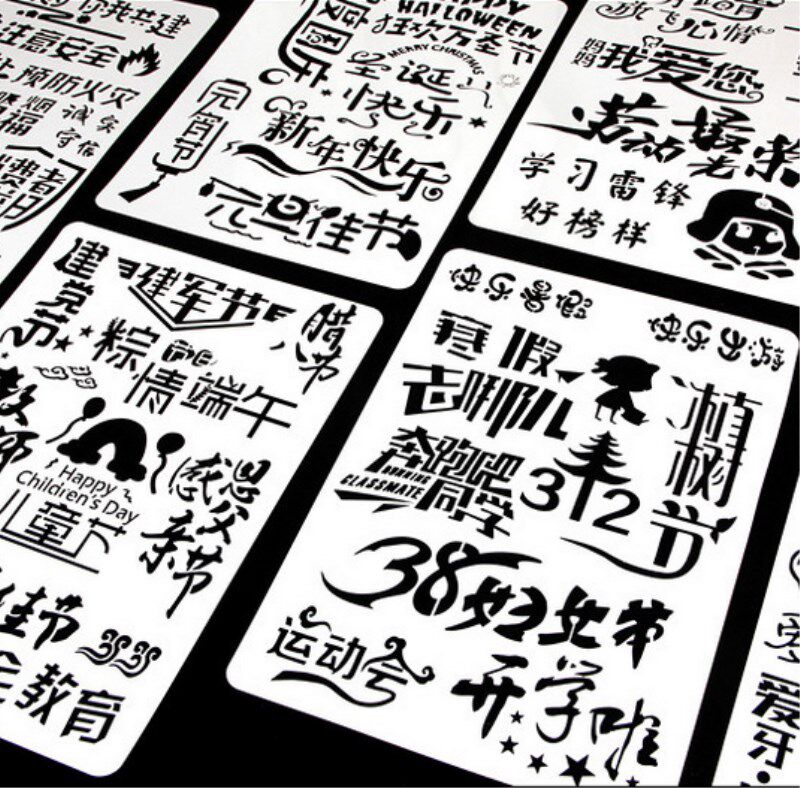 你我共建
注意安全
预防火灾
诚实
守信
消费者
度国庆
HALLOWEEN
狂欢万圣节
MERRY CHRISTMAS
圣诞
快乐
元宵节
新年快乐
元旦佳节
飞心情
妈妈我爱您
劳动最光荣
学习雷锋
好榜样
建党节
建军节
腊八节
粽情端午
教师
Happy
Children's Day
儿童节
感恩父亲节
佳节
全教育
快乐暑假
快乐出游
寒假
去哪儿
植树节
奔跑吧
RUNNING
同学
CLASSMATE
312
38妇女节
运动会
开学啦
爱牙